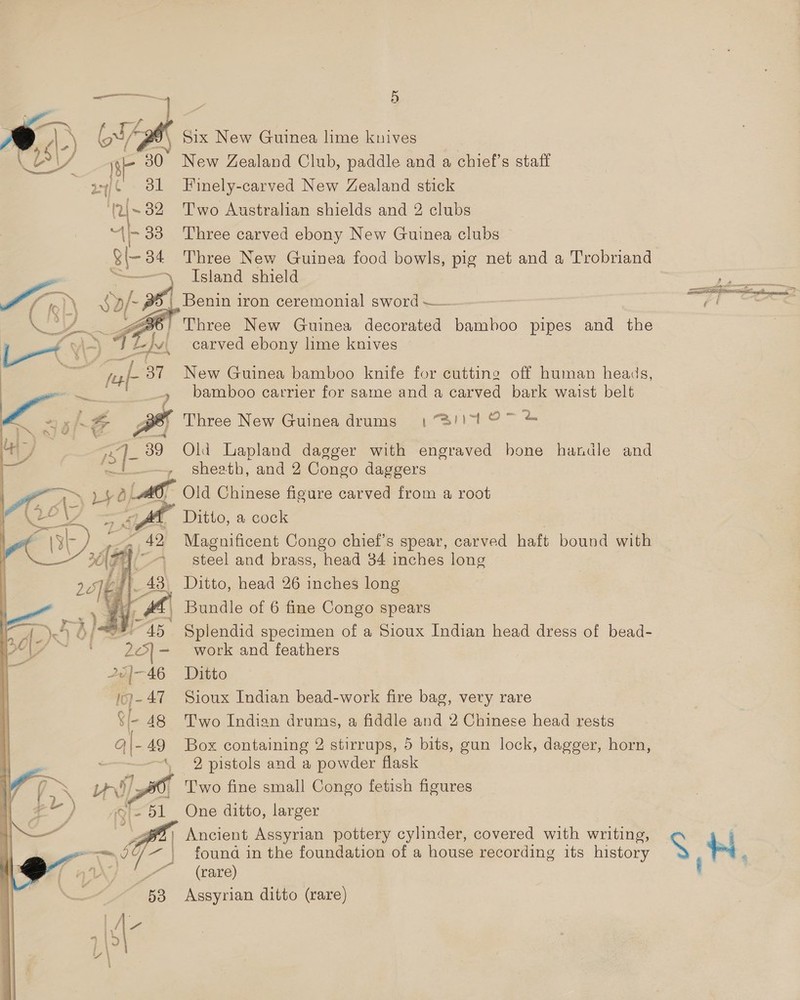 5
Six New Guinea lime knives
30 New Zealand Club, paddle and a chief's staff
31 Finely-carved New Zealand stick
32 Two Australian shields and 2 clubs
33 Three carved ebony New Guinea clubs
34 Three New Guinea food bowls, pig net and a Trobriand
Island shield
35 Benin iron ceremonial sword
36 Three New Guinea decorated bamboo pipes and the
carved ebony lime knives
37 New Guinea bamboo knife for cutting off human heads,
bamboo carrier for same and a carved bark waist belt
38 Three New Guinea drums
39 Old Lapland dagger with engraved bone handle and
sheath, and 2 Congo daggers
40 Old Chinese figure carved from a root
Ditto, a cock
42 Magnificent Congo chief's spear, carved haft bound with
steel and brass, head 34 inches long
43 Ditto, head 26 inches long
Bundle of 6 fine Congo spears
45 Splendid specimen of a Sioux Indian head dress of bead-
work and feathers
46 Ditto
47 Sioux Indian bead-work fire bag, very rare
48 Two Indian drums, a fiddle and 2 Chinese head rests
49 Box containing 2 stirrups, 5 bits, gun lock, dagger, horn,
2 pistols and a powder flask
50 Two fine small Congo fetish figures
51 One ditto, larger
52 Ancient Assyrian pottery cylinder, covered with writing,
found in the foundation of a house recording its history
(rare)
S.H.
53 Assyrian ditto (rare)